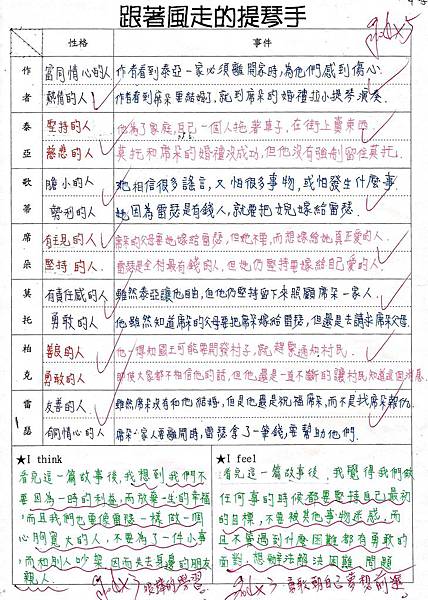 跟著風走的提琴手
性格 事件
作者 富同情心的人 作者看到泰亞一家必須離開家時,為他們感到傷心。
熱情的人 作者看到席朵要結婚了,就到席朵的婚禮拉小提琴演奏。
泰亞 堅持的人 他為了家庭,自己一個人拖著車子,在街上賣東西
慈悲的人 莫托和席朵的婚禮沒成功,但他沒有強制留住莫托。
歌蒂 膽小的人 她相信很多謠言,又怕很多事物,或怕發生什麼事.
勢利的人 她因為雷瑟是有錢人,就要把女兒嫁給雷瑟。
席朵 有主見的人 席朵的父母要她嫁給雷瑟,但她不要,而想嫁給她真正愛的人.
堅持的人 雷瑟是全村最有錢的人,但她仍堅持要嫁給自己愛的人.
莫托 有責任感的人 雖然泰亞讓他自由,但他仍堅持留下來照顧席朵一家人.
勇敢的人 他雖然知道席朵的父母要把席朵嫁給雷瑟,但還是去請求席朵父母.
柏克 善良的人 他一得知國王可能要開發村子,就趕緊通知村民.
勇敢的人 即使大家都不相信他的話,但他還是一直不斷的讓村民知道這個消息.
雷瑟 友善的人 雖然席朵沒有和他結婚,但是他還是祝福席朵,而不是找席朵報仇.
有同情心的人 席朵一家人要離開時,雷瑟拿了一筆錢要幫助他們.
★I think
看完這一篇故事後,我想到我們不
要因為一時的利益,而放棄一生的幸福,
而且我們也要像雷瑟一樣,做一個
心胸寬大的人,不要為了一件小事
,而和別人吵架,因而失去身邊的朋友
親人.
★I feel
看完這一篇故事後,我覺得我們做
任何事的時候都要堅持自己最初
的目標,不要被其他事物迷惑,而
且不管遇到什麼困難都有勇敢的
面對,想辦法解決困難、問題
勇敢朝自己夢想前進